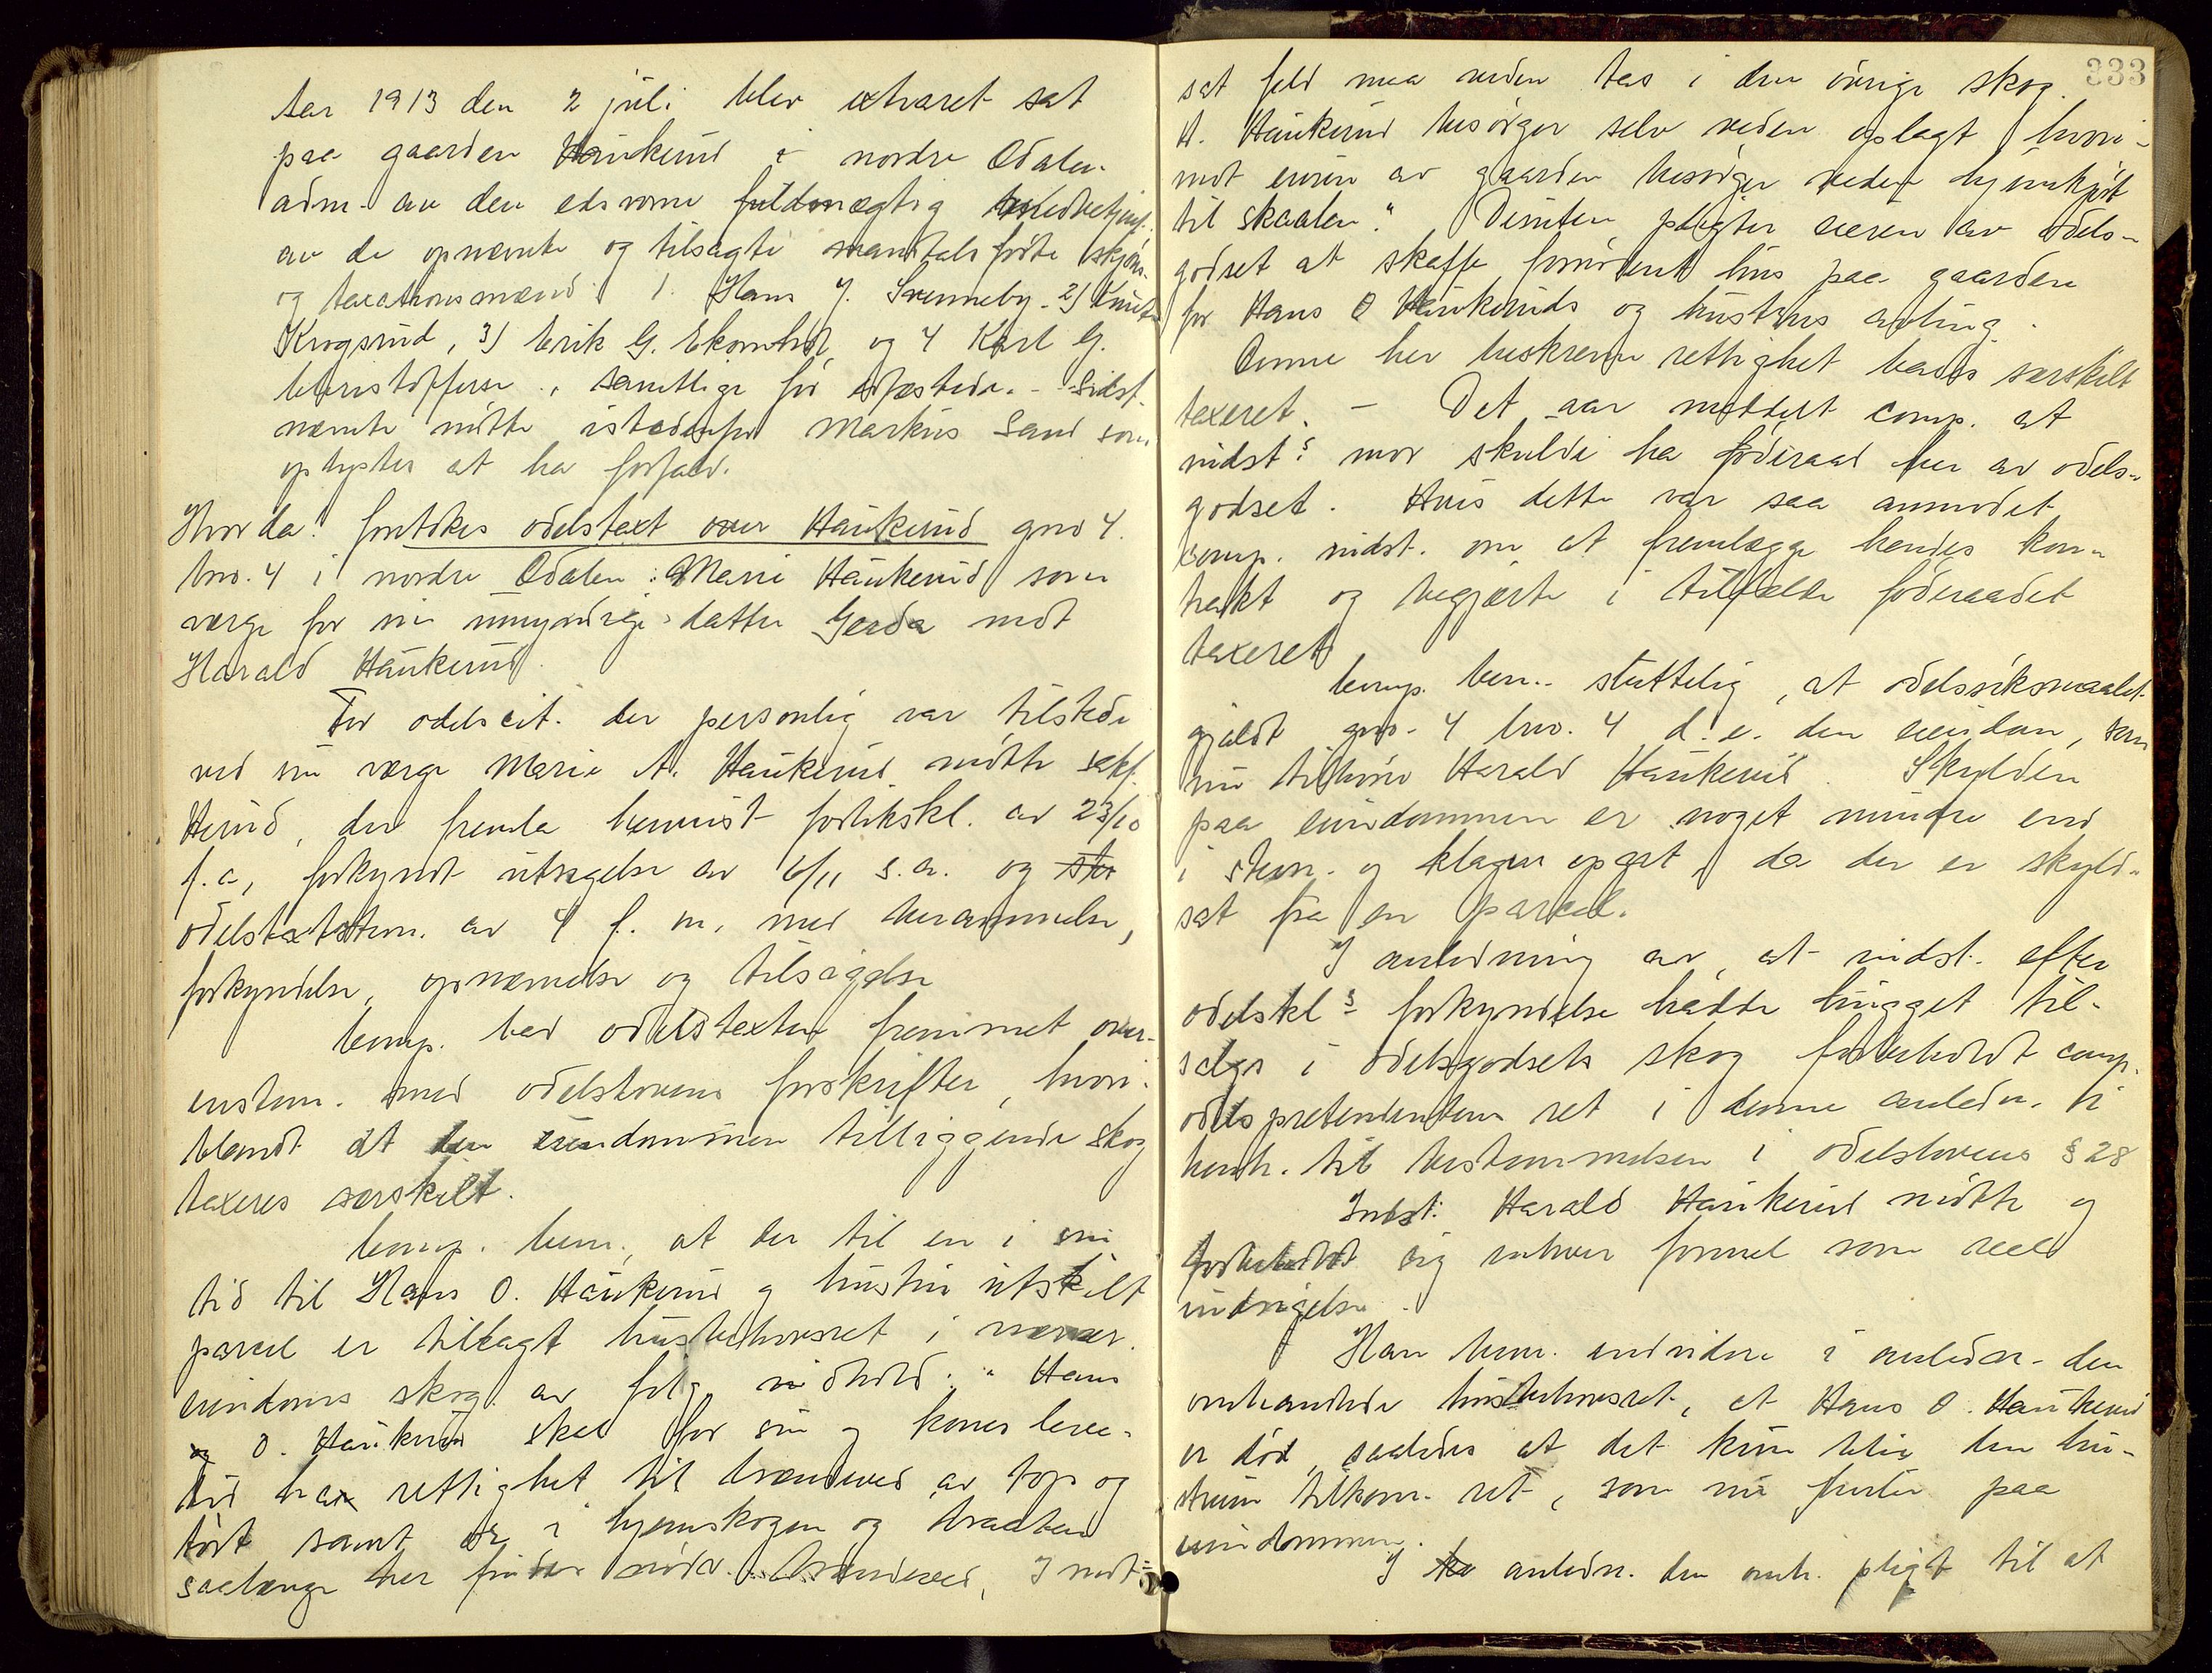 Aar 1913 den 2 juli blev extraret sat
paa gaarden Haukerud i nordre Odalen
adm. av den edsvorne fuldmægtig
av de opnævnte og tilsagte mandtalsførte skjøns-
og taxationsmænd 1. Hans J. Svenneby 2)
Krogsrud, 3) Erik G. Ekornhol og 4 Karl G.
Christoffersen, samtlige før edfæstede. - Sidst-
nævnte møtte istedenfor Markus Sand som
oplystes at ha forfald.
Hvorda: foretokes odelstaxt over Haukerud gno 4.
bno. 4 i nordre Odalen: Marie Haukerud som
verge for sin umyndige datter Gerda mot
Harald Haukerud.
For odelscit. der personlig var tilstede
ved sin verge Marie A. Haukerud møtte sakf.
Herud, der fremla bevist forlikskl. av 23/10
f.a., forkyndt utsigelse av 6/11 s.a. og ster
odelstaxtstevn. av 4 f. m. med berammelse,
forkyndelse, opnævnelse og tilsigelse
Comp. bad odelstaxten fremmet over-
enstem. med odelslovens forskrifter, hvori-
blandt at den eiendommen tilliggende skog
taxeres særskilt.
Comp. bem., at der til en i sin
tid til Hans O. Haukerud og hustru utskilt
parcel er tillagt husbehovsret i nærvær.
eiendoms skog av følg. indhold: "Hans
og O. Haukerud skal for sin og kones leve-
tid ha rettighet til brændeved av top og
tørt samt or i hjemskogen og braaten
saalænge her findes nødv. brændeved, I mot-
333
sat feld maa veden tas i den øvrige skog.
H. Haukerud besørger selv veden oplagt hvori-
mot eieren av gaarden besørger veden hjemkjørt
til skaalen". Desuten pligter eieren av odels-
godset at skaffe fornødent hus paa gaarden
for Hans O Haukeruds og hustrus avling.
Denne her beskrevne rettighet bades særskilt
taxeret. - Det var meddelt comp. at
indst.s mor skulde ha føderaad her av odels-
godset. Hvis dette var saa anmodet
comp. indst. om at fremlægge hendes kon-
trakt og begjærte i tilfælde føderaadet
taxeret
Comp. bem. sluttelig, at odelssøksmaalet
gjældt gno. 4 bno. 4 d.e. den eiendom, som
nu tilhører Harald Haukerud. Skylden
paa eiendommen er noget mindre end
i stevn. og klagen opgit, da der er skyld-
sat fra en parcel.
I anledning av, at indst. efter
odelskl.s forkyndelse hadde hugget til-
salgs i odelsgodsets skog forbeholdt comp.
odelspretendenten ret i denne anledn. h
henh. til bestemmelsen i odelslovens § 28
Indst. Harald Haukerud møtte og
forbeholdt sig enhver formel som reel
indsigelse.
Han bem. endvidere i anledn. den
omhandlede husbehovsret, at Hans O. Haukerud
er død, saaledes at det kun blir den hu-
struen tilkom. ret, som nu finder paa
eiendommen.
I anledn. den omh. pligt til at